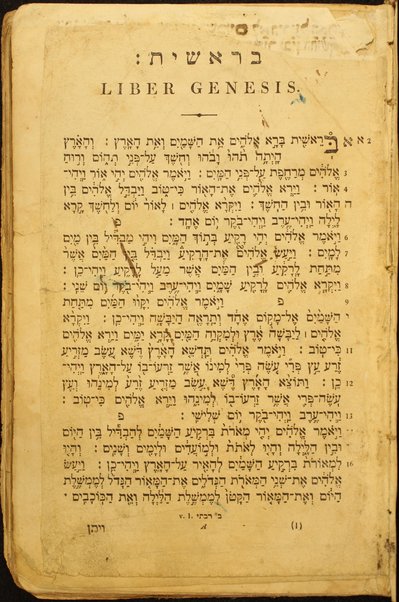 בראשית :
LIBER GENESIS.
א 2 בראשית ברא אלהים את השמים ואת הארץ : והארץ
היתה תהו ובהו וחשך על־פני תהום ורוח
3 אלהים מרחפת על־פני המים : ויאמר אלהים יהי אור ויהי־
4 אור : וירא אלהים את־האור כי־טוב ויבדל אלהים בין
ה האור ובין החשך : ויקרא אלהים ׀ לאור יום ולחשך קרא
לילה ויהי־ערב ויהי־בקר יום אחד :
6 ויאמר אלהים יהי רקיע בתוך המים ויהי מבדיל בין מים
7 למים : ויעש אלהים את־הרקיע ויבדל בין המים אשר
מתחת לרקיע ובין המים אשר מעל לרקיע ויהי־כן :
8 ויקרא אלהים לרקיע שמים ויהי־ערב ויהי־בקר יום שני :
9 פ ויאמר אלהים יקוו המים מתחת
השמים אל־מקום אחד ותראה היבשה ויהי־כן : ויקרא
אלהים ׀ ליבשה ארץ ולמקוה המים קרא ימים וירא אלהים
11 כי־טוב : ויאמר אלהים תדשא הארץ דשא עשב מזריע
זרע עץ פרי עשה פרי למינו אשר זרעו־בו על־הארץ ויהי־
12 כן : ותוצא הארץ דשא עשב מזריע זרע למינהו ועץ
עשה־פרי אשר זרעו־בו למינהו וירא אלהים כי־טוב :
13 ויהי־ערב ויהי־בקר יום שלישי : פ
14 ויאמר אלהים יהי מארת ברקיע השמים להבדיל בין היום
ובין הלילה והיו לאתת ולמועדים ולימים ושנים : והיו
16 למאורת ברקיע השמים להאיר על־הארץ ויהי־כן : ויעש
אלהים את־שני המארת הגדלים את־המאור הגדל לממשלת
היום ואת־המאור הקטן לממשלת הלילה ואת הכוכבים :
ב׳ רבתי v. 1.
(1) A ויתן